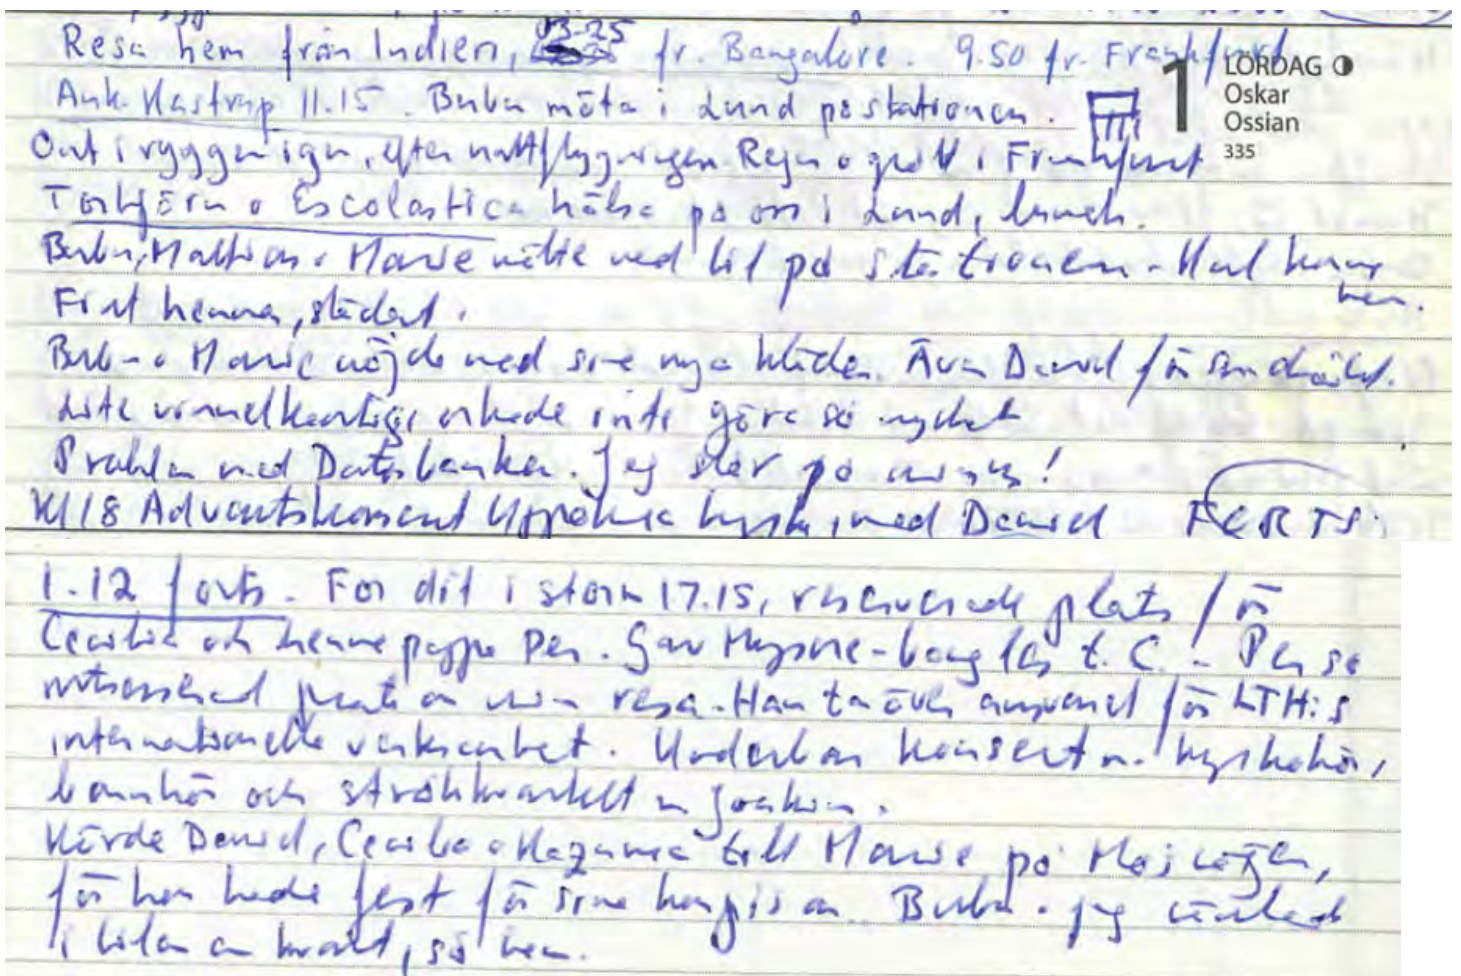 Resa hem från Indien, 03.25 fr. Bangalore. 9.50 fr. Frankfurt
1 LÖRDAG
Oskar
Ossian
335
Ank. Kastrup 11.15. Buba möta i Lund på stationen.
Ont i ryggen igen, efter nattflygningen. Regn o grått i Frankfurt
Torbjörn o Escolastica hälsa på oss i Lund, lunch.
Buba, Mattias o Marie mötte med bil på stationen.
hem.
Fint hemma, städat.
Buba o Marie nöjda med sina nya kläder. Även David för sin
Lite orkade inte göra så mycket
Problem med Databanken. Jag slår på
Kl 18 Adventskonsert Uppåkra kyrka, med David
1.12 forts. For dit i storm 17.15, reserverade plats för
Cecilia och hennes pappa Per. Gav Mysore- t. C. - Per så
intresserad prata om min resa. Han tar över ansvaret för LTH:s
internationella verksamhet. Underbar konsert m. kyrkokör,
barnkör och stråkkvartett m Joakim.
Körde David, Cecilia o till Marie på
för hon hade fest för sina kompisar. Buba o jag väntade
i bilen en kvart, så hem.